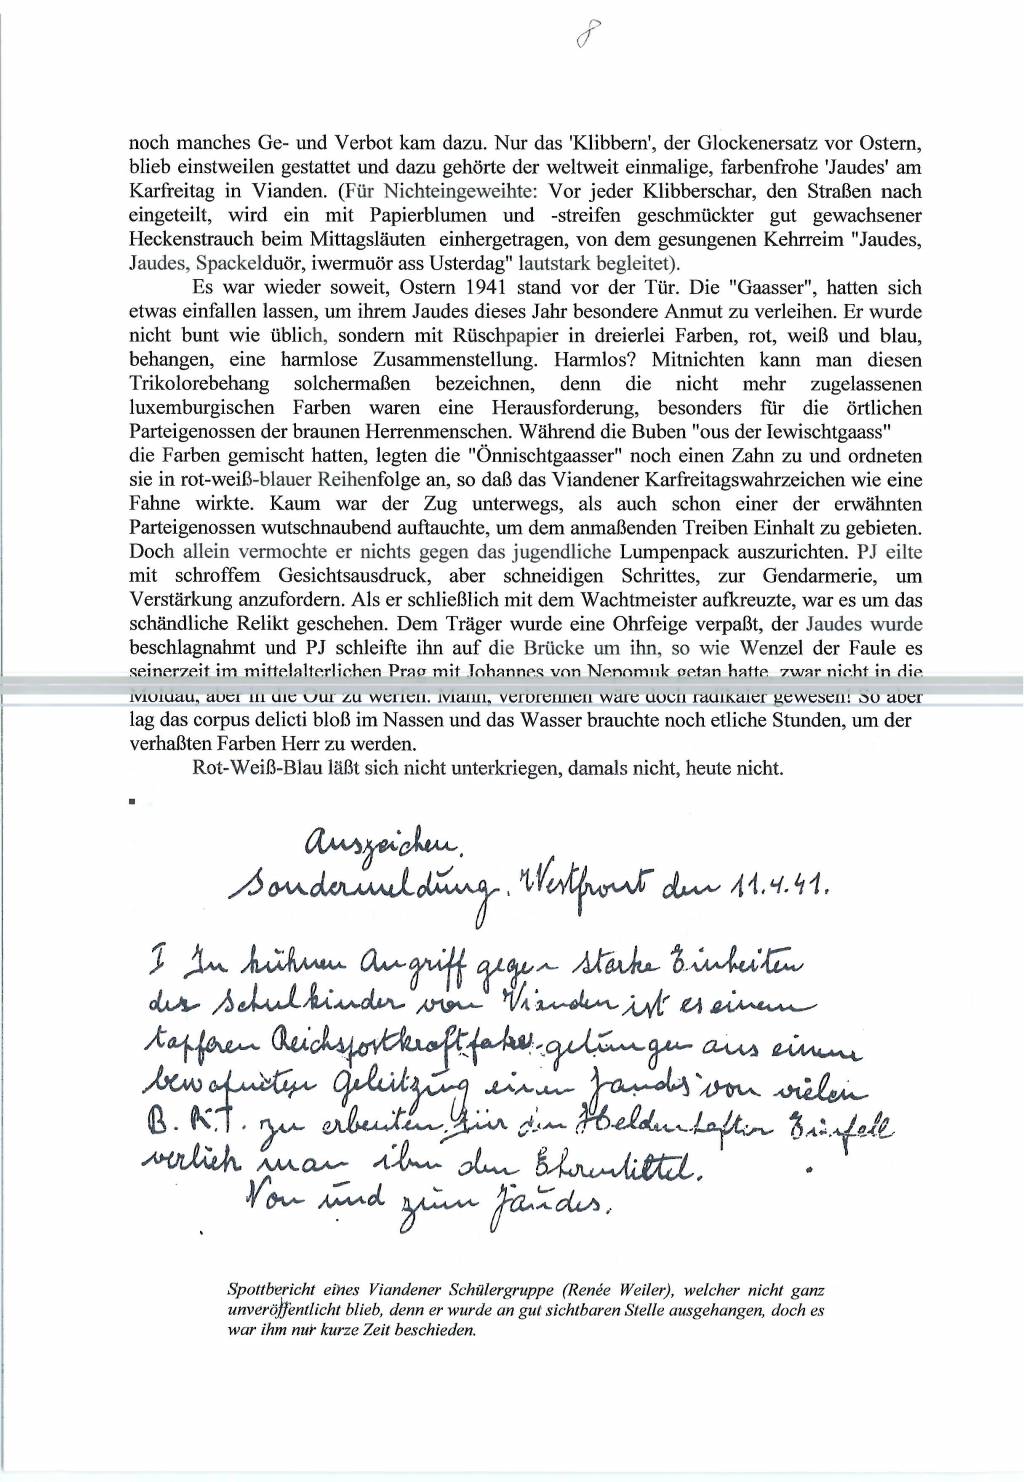 8
noch manches Ge- und Verbot kam dazu. Nur das 'Klibbern', der Glockenersatz vor Ostern,
blieb einstweilen gestattet und dazu gehörte der weltweit einmalige, farbenfrohe 'Jaudes' am
Karfreitag in Vianden. (Für Nichteingeweihte: Vor jeder Klibberschar, den Straßen nach
eingeteilt, wird ein mit Papierblumen und -streifen geschmückter gut gewachsener
Heckenstrauch beim Mittagsläuten einhergetragen, von dem gesungenen Kehrreim "Jaudes,
Jaudes, Spackelduör, iwermuör ass Usterdag" lautstark begleitet).
Es war wieder soweit, Ostern 1941 stand vor der Tür. Die "Gaasser", hatten sich
etwas einfallen lassen, um ihrem Jaudes dieses Jahr besondere Anmut zu verleihen. Er wurde
nicht bunt wie üblich, sondern mit Rüschpapier in dreierlei Farben, rot, weiß und blau,
behangen, eine harmlose Zusammenstellung. Harmlos? Mitnichten kann man diesen
Trikolorebehang solchermaßen bezeichnen, denn die nicht mehr zugelassenen
luxemburgischen Farben waren eine Herausforderung, besonders für die örtlichen
Parteigenossen der braunen Herrenmenschen. Während die Buben "ous der Iewischtgaass"
die Farben gemischt hatten, legten die "Önnischtgaasser" noch einen Zahn zu und ordneten
sie in rot-weiß-blauer Reihenfolge an, so daß das Viandener Karfreitagswahrzeichen wie eine
Fahne wirkte. Kaum war der Zug unterwegs, als auch schon einer der erwähnten
Parteigenossen wutschnaubend auftauchte, um dem anmaßenden Treiben Einhalt zu gebieten.
Doch allein vermochte er nichts gegen das jugendliche Lumpenpack auszurichten. PJ eilte
mit schroffem Gesichtsausdruck, aber schneidigen Schrittes, zur Gendarmerie, um
Verstärkung anzufordern. Als er schließlich mit dem Wachtmeister aufkreuzte, war es um das
schändliche Relikt geschehen. Dem Träger wurde eine Ohrfeige verpaßt, der Jaudes wurde
beschlagnahmt und PJ schleifte ihn auf die Brücke um ihn, so wie Wenzel der Faule es
seinerzeit im mittelalterlichen Prag mit Johannes von Nepomuk getan hatte, zwar nicht in die
Moldau, aber in die Our zu werfen. Mann, verbrennen wäre doch radikaler gewesen! So aber
lag das corpus delicti bloß im Nassen und das Wasser brauchte noch etliche Stunden, um der
verhaßten Farben Herr zu werden.
Rot-Weiß-Blau läßt sich nicht unterkriegen, damals nicht, heute nicht.
Auszeichen.
Sondermeldung. Westfront den 11.4.41.
I In kühnen Angriff gegen starke Einheiten
der Schulkinder von Vianden ist es einem
tapferen gelungen aus einem
bewafneten Geleitzug einen Jaudes von vielen
B.R.T. zu erbeuten. Für den Heldenhaften Einfall
verlieh man ihm den Ehrentittel.
Von und zum Jaudes.
Spottbericht eines Viandener Schülergruppe (Renée Weiler), welcher nicht ganz
unveröffentlicht blieb, denn er wurde an gut sichtbaren Stelle ausgehangen, doch es
war ihm nur kurze Zeit beschieden.